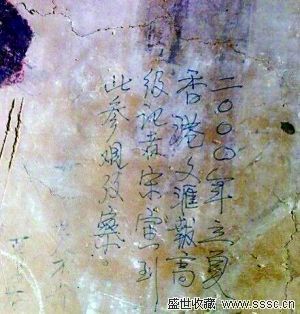 二〇〇四年立夏
香港文匯報高
级记者宋到
此参观攷察。
盛世收藏 www.sssc.cn